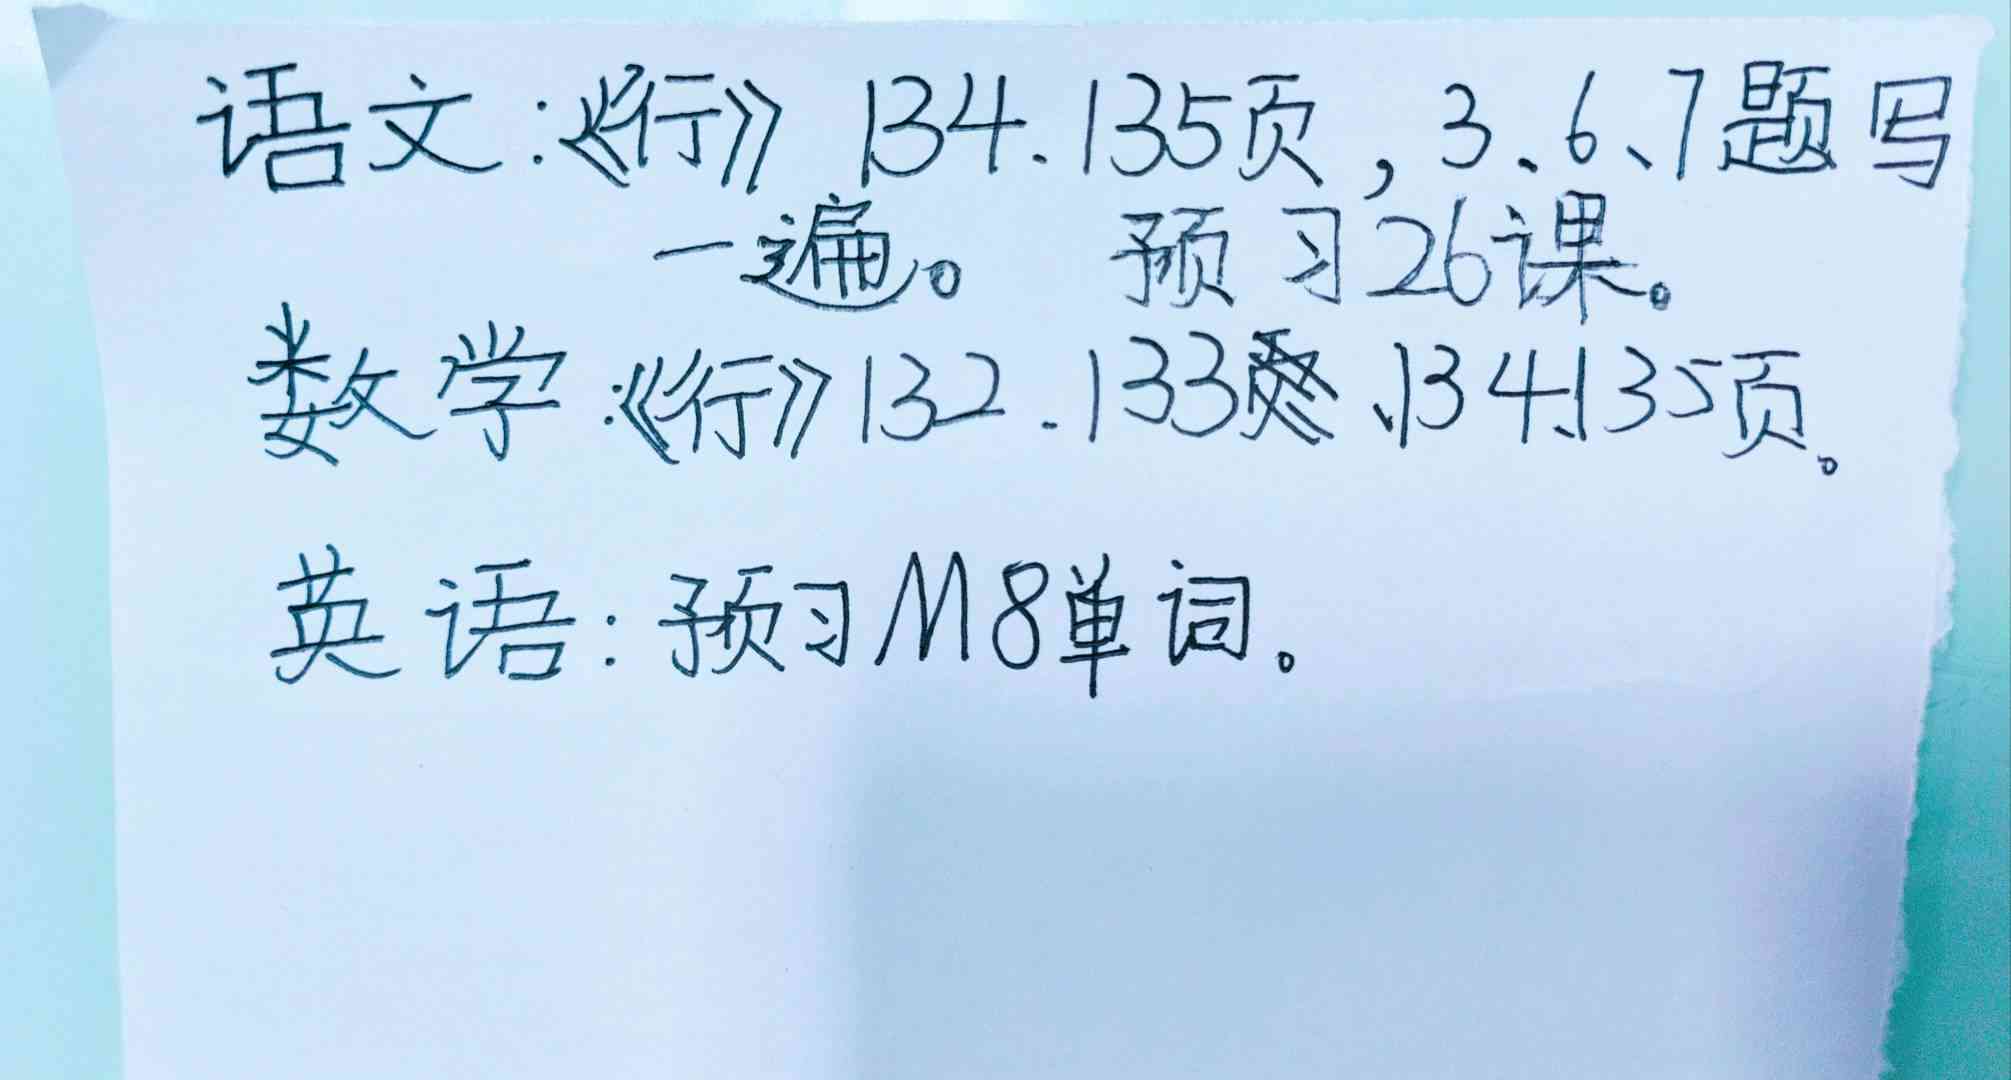 语文:《行》134.135页,3、6、7题写
一遍。 预习26课。
数学:《行》132.133、134、135页。
英语:预习M8单词。